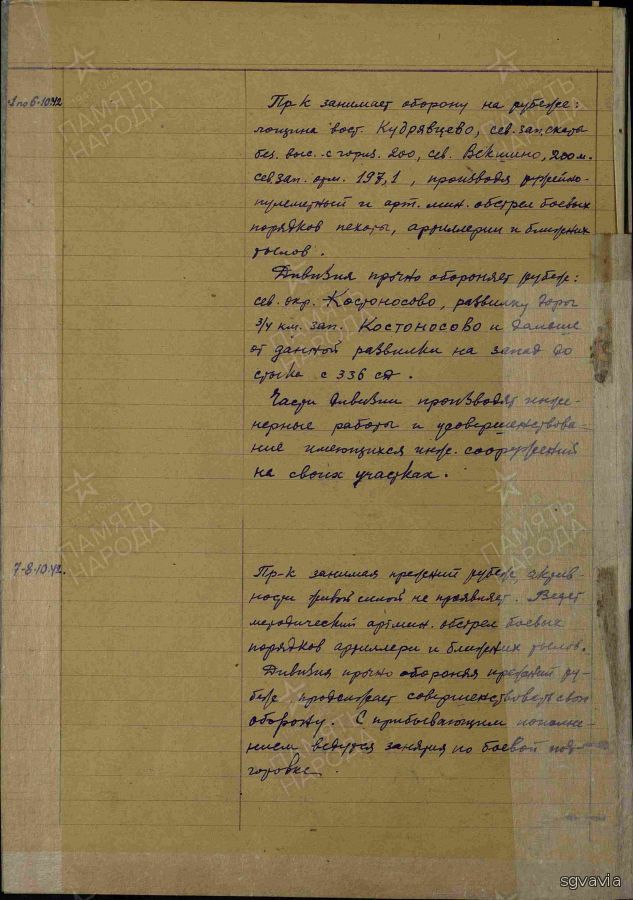 1 по 6.10.42
Пр-к занимает оборону на рубеже:
лощина вост. Кудрявцево, сев. зап. скаты
без. выс. с гориз. 200, сев. Векшино, 200 м.
сев. зап. отм. 197,1, производя ружейно-
пулеметный и арт. мин. обстрел боевых
порядков пехоты, артиллерии и ближних
тылов.
Дивизия прочно обороняет рубеж:
сев. окр. Костоносово, развилку дорог
3/4 км. зап. Костоносово и дальше
от данной развилки на запад до
стыка с 336 сд.
Части дивизии производят инже-
нерные работы и усовершенствова-
ние имеющихся инж. сооружений
на своих участках.
7-8.10.42.
Пр-к занимая прежний рубеж, актив-
ности живой силой не проявляет. Ведет
методический арт. мин. обстрел боевых
порядков артиллери и ближних тылов.
Дивизия прочно обороняя прежний ру-
беж продолжает совершенствовать свою
оборону. С прибывающим пополне-
нием ведутся занятия по боевой под-
готовке.
ПАМЯТЬ
НАРОДА
ПАМЯТЬ
НАРОДА
ПАМЯТЬ
НАРОДА
ПАМЯТЬ
НАРОДА
ПАМЯТЬ
НАРОДА
sgvavia